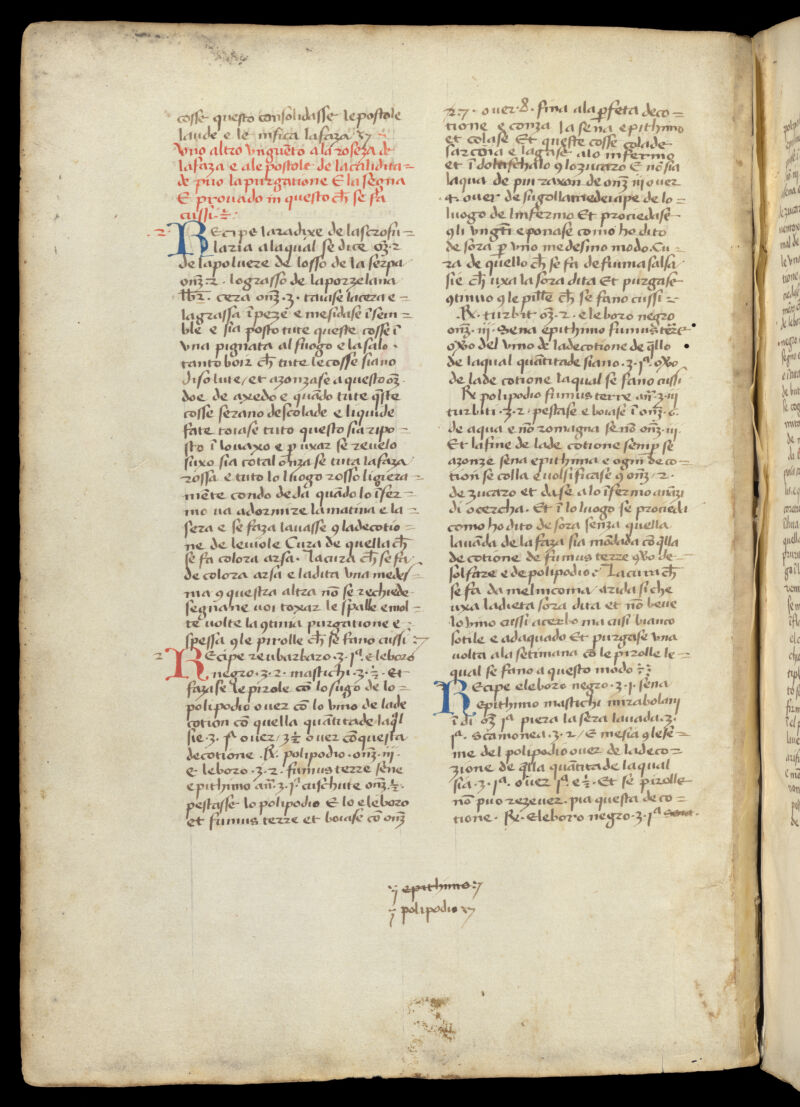 cosse questo consolidasse le postole
laude e le infica la faza
Vno altro vnguēto a la roseza de
la faza e ale postole de la calidita=
de piu la purgatione E la segna
E prouado in questo ch̄ se fa
cussi
Recipe la radixe de la scrofu=
laria ala qual se dice oz̄. 2
de la poluere de losso de la serpa
onz̄. 2. lo grasso de la porzelana
cera onz̄. 3. taiase la cera e=
la grassa ī peze e mesidase īsem=
ble e sia posto tute queste cosse ī
vna pignata al fuogo e lassalo.
tanto boir ch̄ tute le cosse siano
disolute/ et azonzase a questo oz̄.
doe de axedo e quādo tute q̄ste
cosse serano descolade e liquide
fate toiase tuto questo sia ripo=
sto ī lo uaxo e p̱ uxar se reuelo
suxo sia cotal onza se tuta la faza
rossa e tuto lo luogo rosso ligiera=
mēte condo deda quādo lo īfer=
mo ua adormire la matina e la=
sera e se faza lauasse 9 la decotio=
ne de leuiole Cura de quella ch̄
se fa colora arsa. la cura ch̄ se fa
de colora arsa e la dita vna medes=
ma 9 questra altra nō se rechiede
segnare uoi toxar le spalle e mol=
te uolte la 9tinua purgatione e
spessa 9 le pirolle ch̄ se fano cussi
Recipe reubarbaro .3. jª. eleboro
negro .3. 2. mastichi .3. ½. et
fazase le pirole cō lo sugo de lo=
polipodio ouer cō lo vino de lade
cotion cō quella quātitade la q̄l
sie .3. jª ouer/ 3½ ouer cō questa
decotione. R. polipodio. onz̄. iij.
eleboro .3. 2. fumus terre sene
epithimo an̄. 3. jª cuschute onz̄. ½.
pestasse lo polipodio E lo eleboro
et fumus terre et boiase cō onz̄
27. ouer. 8. fina ala p̱feta deco=
tione e conza la sena epithimo
et colase Et queste cosse colade
sarcoia e lagrase alo infermo
et ī dotaschalo 9 lo zucaro E nō sia
laqua de piu raxon de onz̄ iij ouer
4. ouer de sugo llamederape de lo=
luogo de linfermo Et prociedase
9 li vngēti e ponase como ho dito
de sora p̱ vno medesimo modo. Cu=
ra de quello ch̄ se fa de fiuma salsa
sie ch̄ uxa la sora dita Et purgase
9tinuo 9 le pille ch̄ se fano cussi
Rx. turbit oz̄. 2. eleboro negro
onz̄. iij. Sena epithimo fumus terre
oxo del vino de la decotione de q̄llo
de la qual quātitade siano. 3. jª. oxo
de lade cotione la qual se fano cussi
Rx polipodio fumus terre an̄. 3. iij
turbiti .3. 2. pestase e boiase ī onz̄. c.
de aqua e nō romagna se nō onz̄. iij.
Et la fine de lade cotione semp̱ se
azonze sena epithima e ogni deco=
tion se colla e uolsificase 9 onz̄. 2.
de zucaro et da se alo īfermo auanzi
di ocercha. Et ī lo luogo se prociedi
como ho dito de sora senza quella
lauāda de la faza sia mādada cō q̄lla
decotione de fumus terre oxo de=
solfare e de polipodio. La cura ch̄
se fa da melnicoma/ arida si che
uxa la dieta sora dita et nō beue
lo vino cussi acerbo ma cusi bianco
sotile e adaquado Et purgase vna
uolta ala setimana cō le pirolle le=
qual se fano a questo modo
Recipe eleboro negro .3. j. sena
epithimo mastichi mirabolani
ī di oz̄ jª piera lasera lauada. 3.
jª. Scamonea .3. 2/ E mesia 9 lese=
me del polipodio ouer de la deco=
zione de q̄lla quātitade la qual
sia .3. jª. ouer jª. e ½. Et se pirolle
nō puo rezeuer. pia questa deco=
tione. Re. eleboro negro .3. jª sena.
epithimo
polipodio